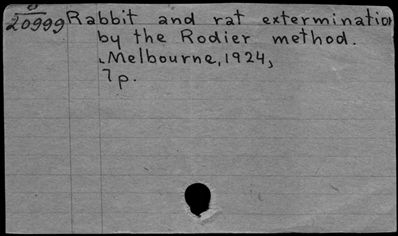 20999 Rabbit and rat exterminatio
by the Rodier method.
Melbourne, 1924,
7p.